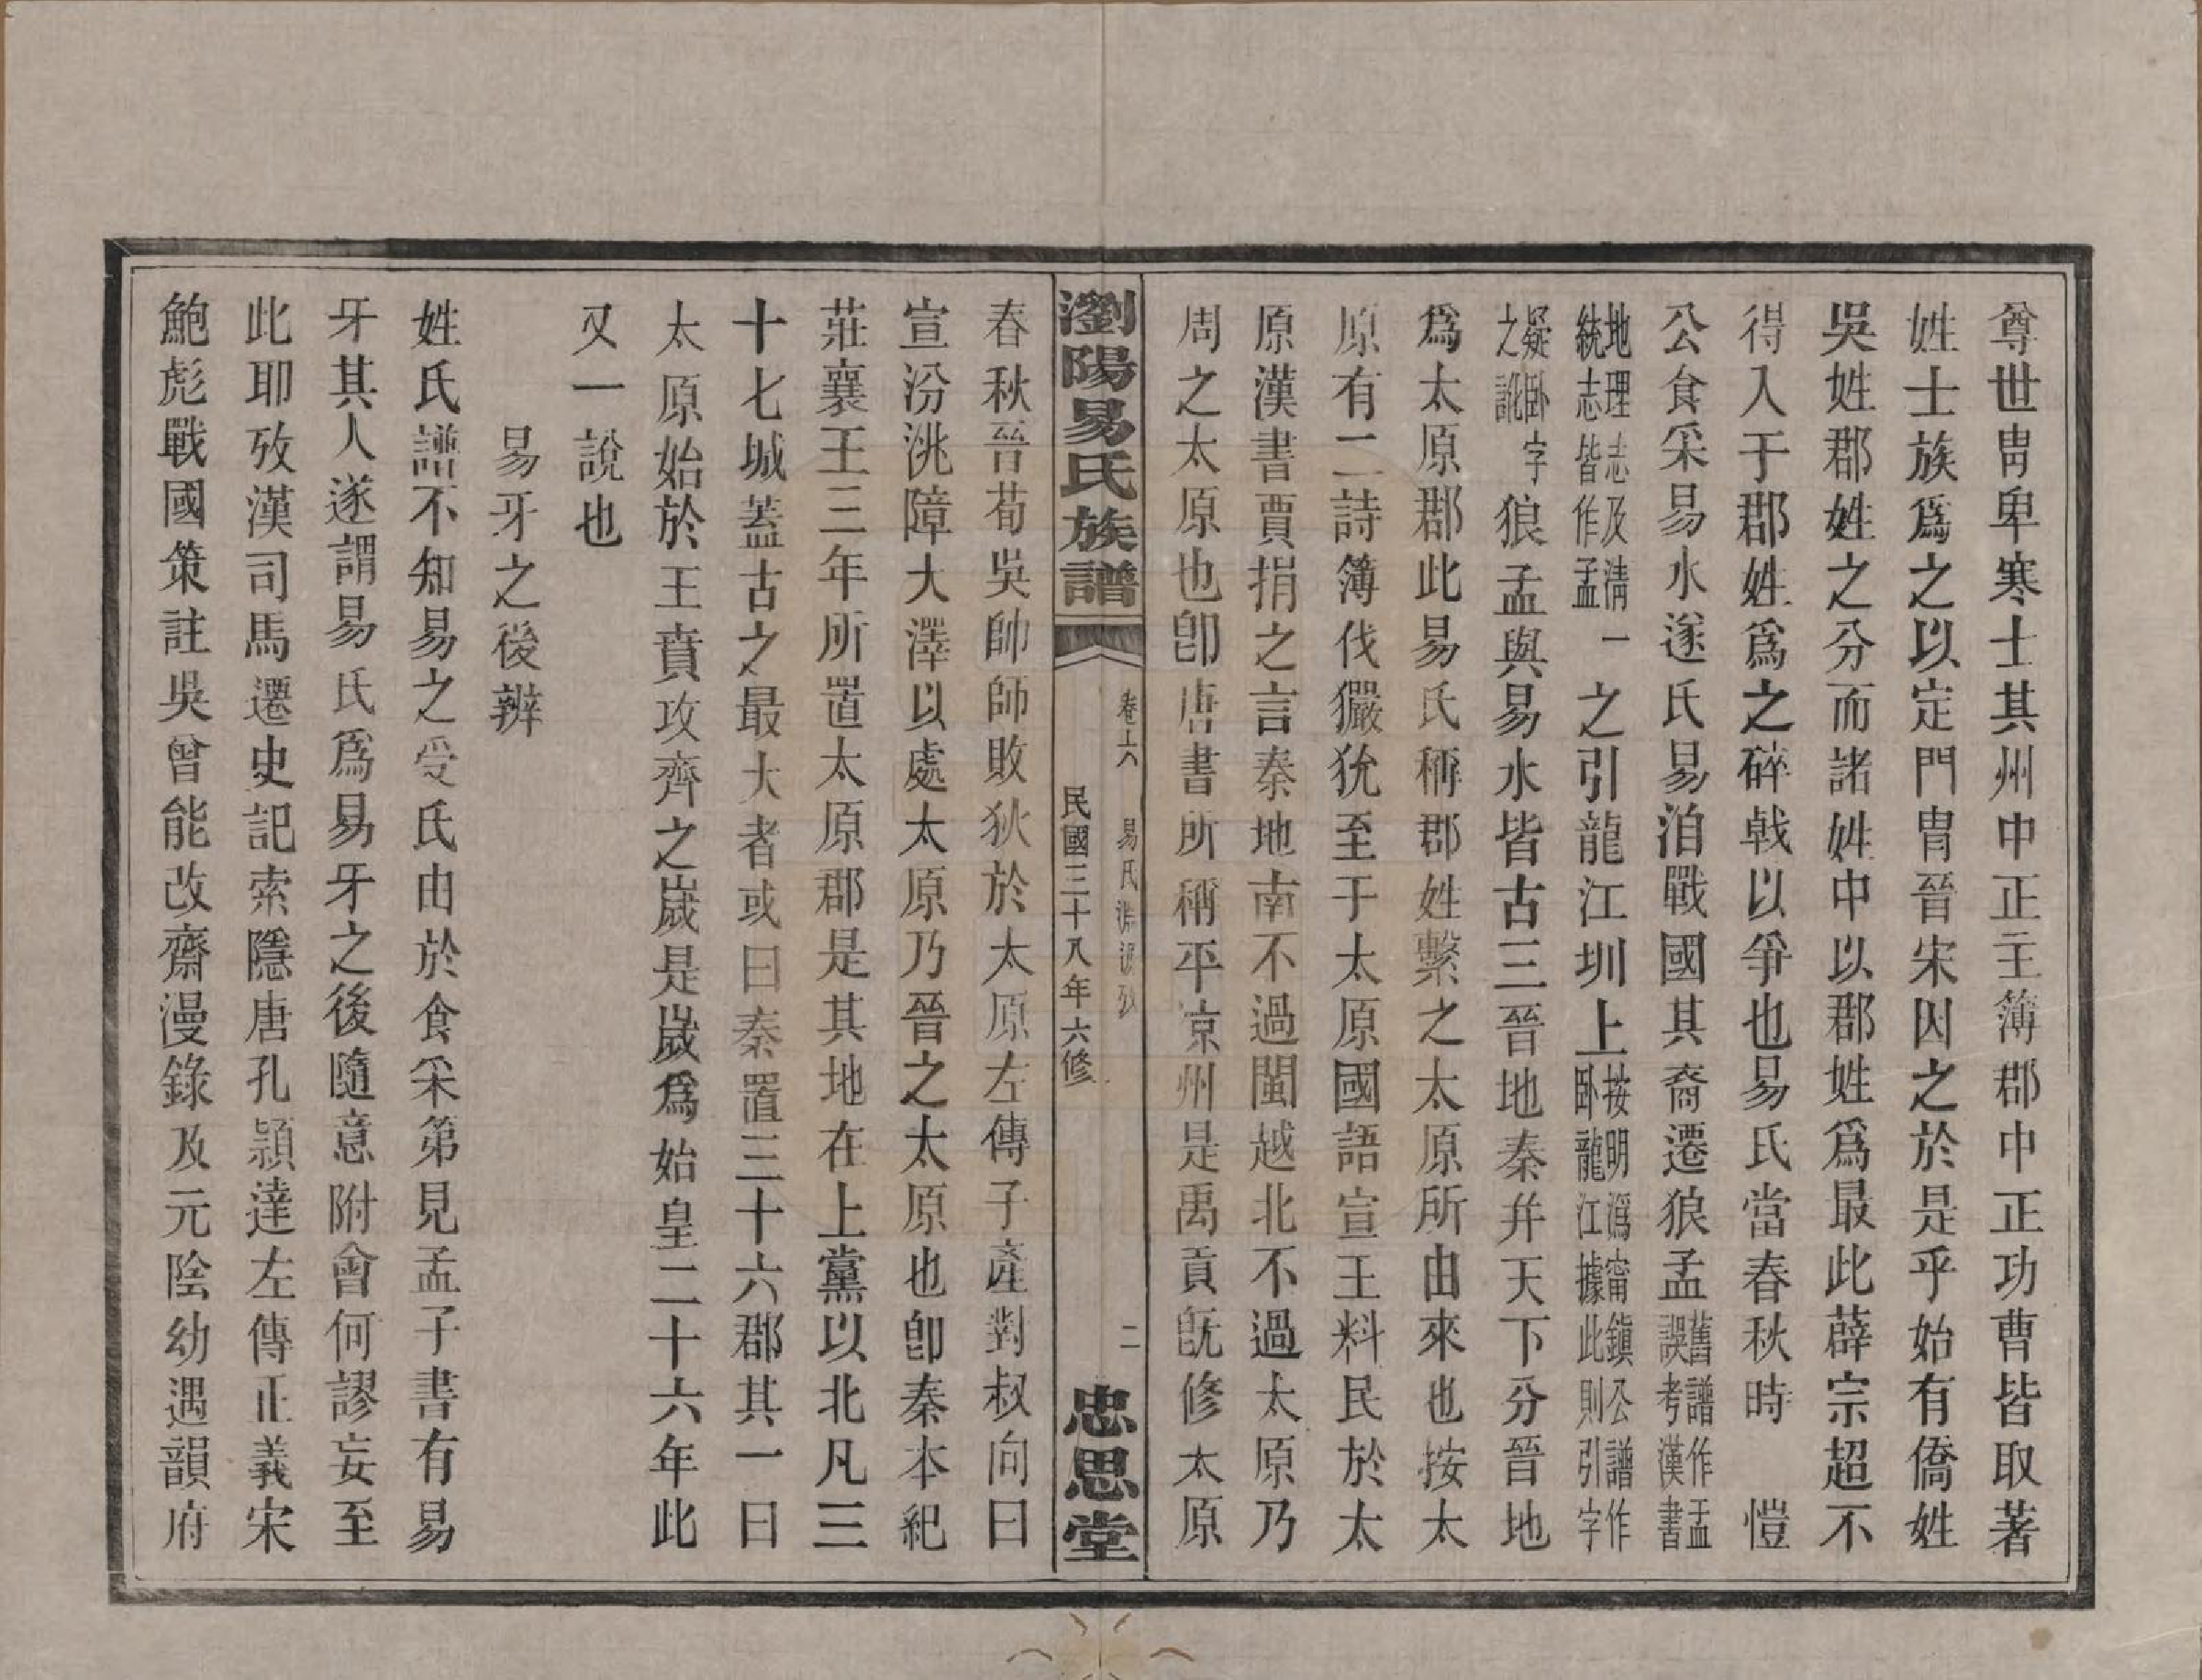 尊世胄卑寒士其州中正主簿郡中正功曹皆取著
姓士族爲之以定門胄晉宋因之於是乎始有僑姓
吳姓郡姓之分而諸姓中以郡姓爲最此薜宗超不
得入于郡姓爲之碎戟以爭也易氏當春秋時　愷
公食采易水遂氏易洎戰國其裔遷狼孟舊譜作盂誤考漢書
地理志及淸一統志皆作孟一之引龍江圳上按明潙甯鎭公譜作卧龍江據此則引字
疑卧字之訛狼孟與易水皆古三晉地秦幷天下分晉地
爲太原郡此易氏稱郡姓繫之太原所由來也按太
原有二詩簿伐玁狁至于太原國語宣王料民於太
原漢書賈捐之言秦地南不過閩越北不過太原乃
周之太原也卽唐書所稱平凉州是禹貢旣修太原
瀏陽易氏族譜
卷十六　易氏淵源攷　二
民國三十八年六修
忠思堂
春秋晉荀吳帥師敗狄於太原左傳子產對叔向曰
宣汾洮障大澤以處太原乃晉之太原也卽秦本紀
莊襄王三年所置太原郡是其地在上黨以北凡三
十七城蓋古之最大者或曰秦置三十六郡其一曰
太原始於王賁攻齊之歲是歲爲始皇二十六年此
又一說也
易牙之後辨
姓氏譜不知易之受氏由於食采第見孟子書有易
牙其人遂謂易氏爲易牙之後隨意附會何謬妄至
此耶攷漢司馬遷史記索隱唐孔穎達左傳正義宋
鮑彪戰國策註吳曾能改齋漫錄及元陰幼遇韻府